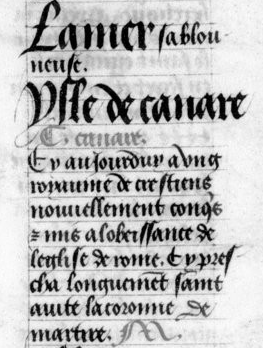 Lamer sablon
neuse.
Ysle de canare
C. canare.
Cy aujourduy a vng
royaume de crestiens
nouuellement conqs
z mis a lobeissance de
leglise de rome. Cy pres
cha longuemēt saint
aucte la coronne de
martire.